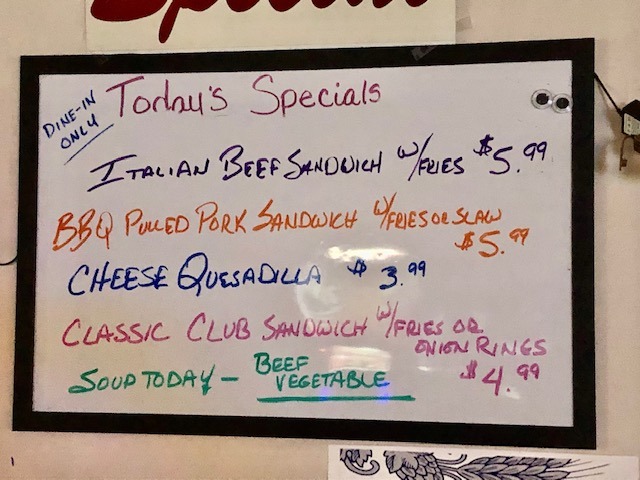 Specials
DINE-IN
ONLY
Today's Specials
ITALIAN BEEF SANDWICH W/FRIES $5.99
BBQ PULLED PORK SANDWICH W/FRIES OR SLAW
$5.99
CHEESE QUESADILLA $3.99
CLASSIC CLUB SANDWICH W/FRIES OR
ONION RINGS
$4.99
SOUP TODAY - BEEF
VEGETABLE